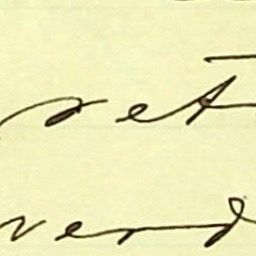 set
verd